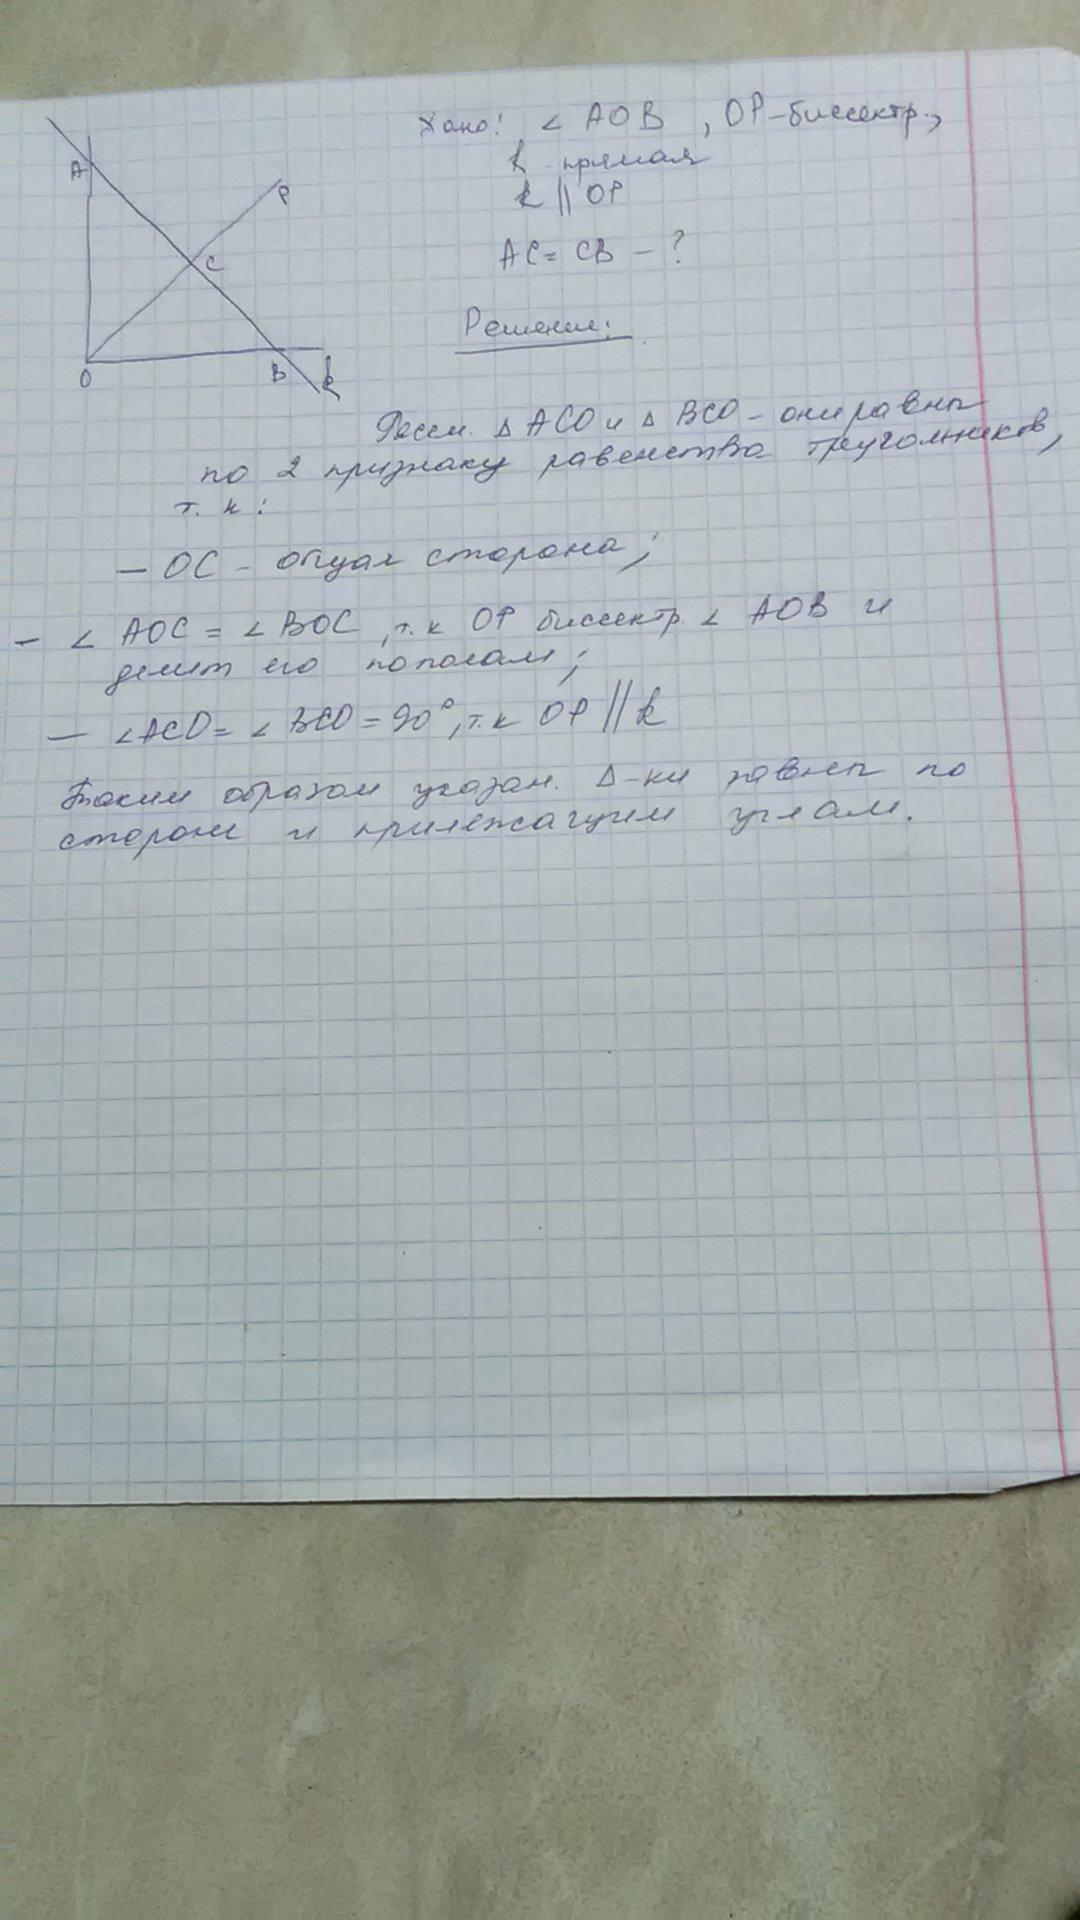 A
P
C
O
B
k
Дано: ∠ AOB, OP-биссектр.,
k прямая
k || OP
AC = CB - ?
Решение:
Рассм. Δ ACO и Δ BCO - они равны
по 2 признаку равенства треугольников,
т. к:
— OC - общая сторона;
— ∠ AOC = ∠ BOC, т.к OP биссектр. ∠ AOB и
делит его пополам;
— ∠ACO = ∠ BCO = 90°, т.к OP || k
Таким образом указан. Δ-ки равны по
стороне и прилежащим углам.